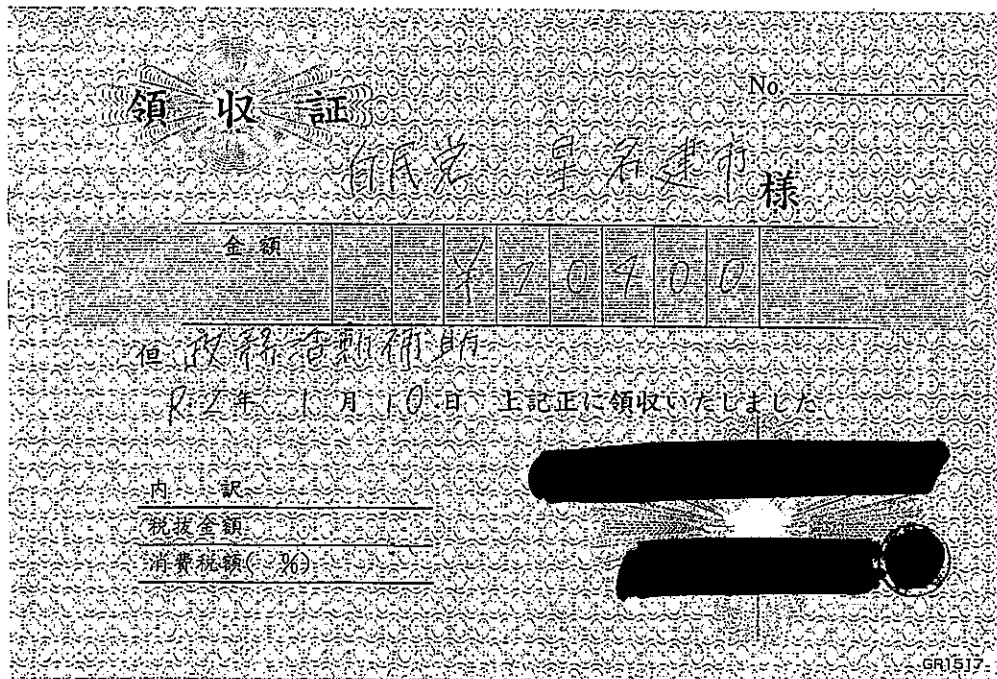 領収証
No.
自民党 星名建市 様
金額 ¥70400
但 政務活動補助
R2年 1月 10日 上記正に領収いたしました
内 訳
税抜金額
消費税額( %)
GR1517